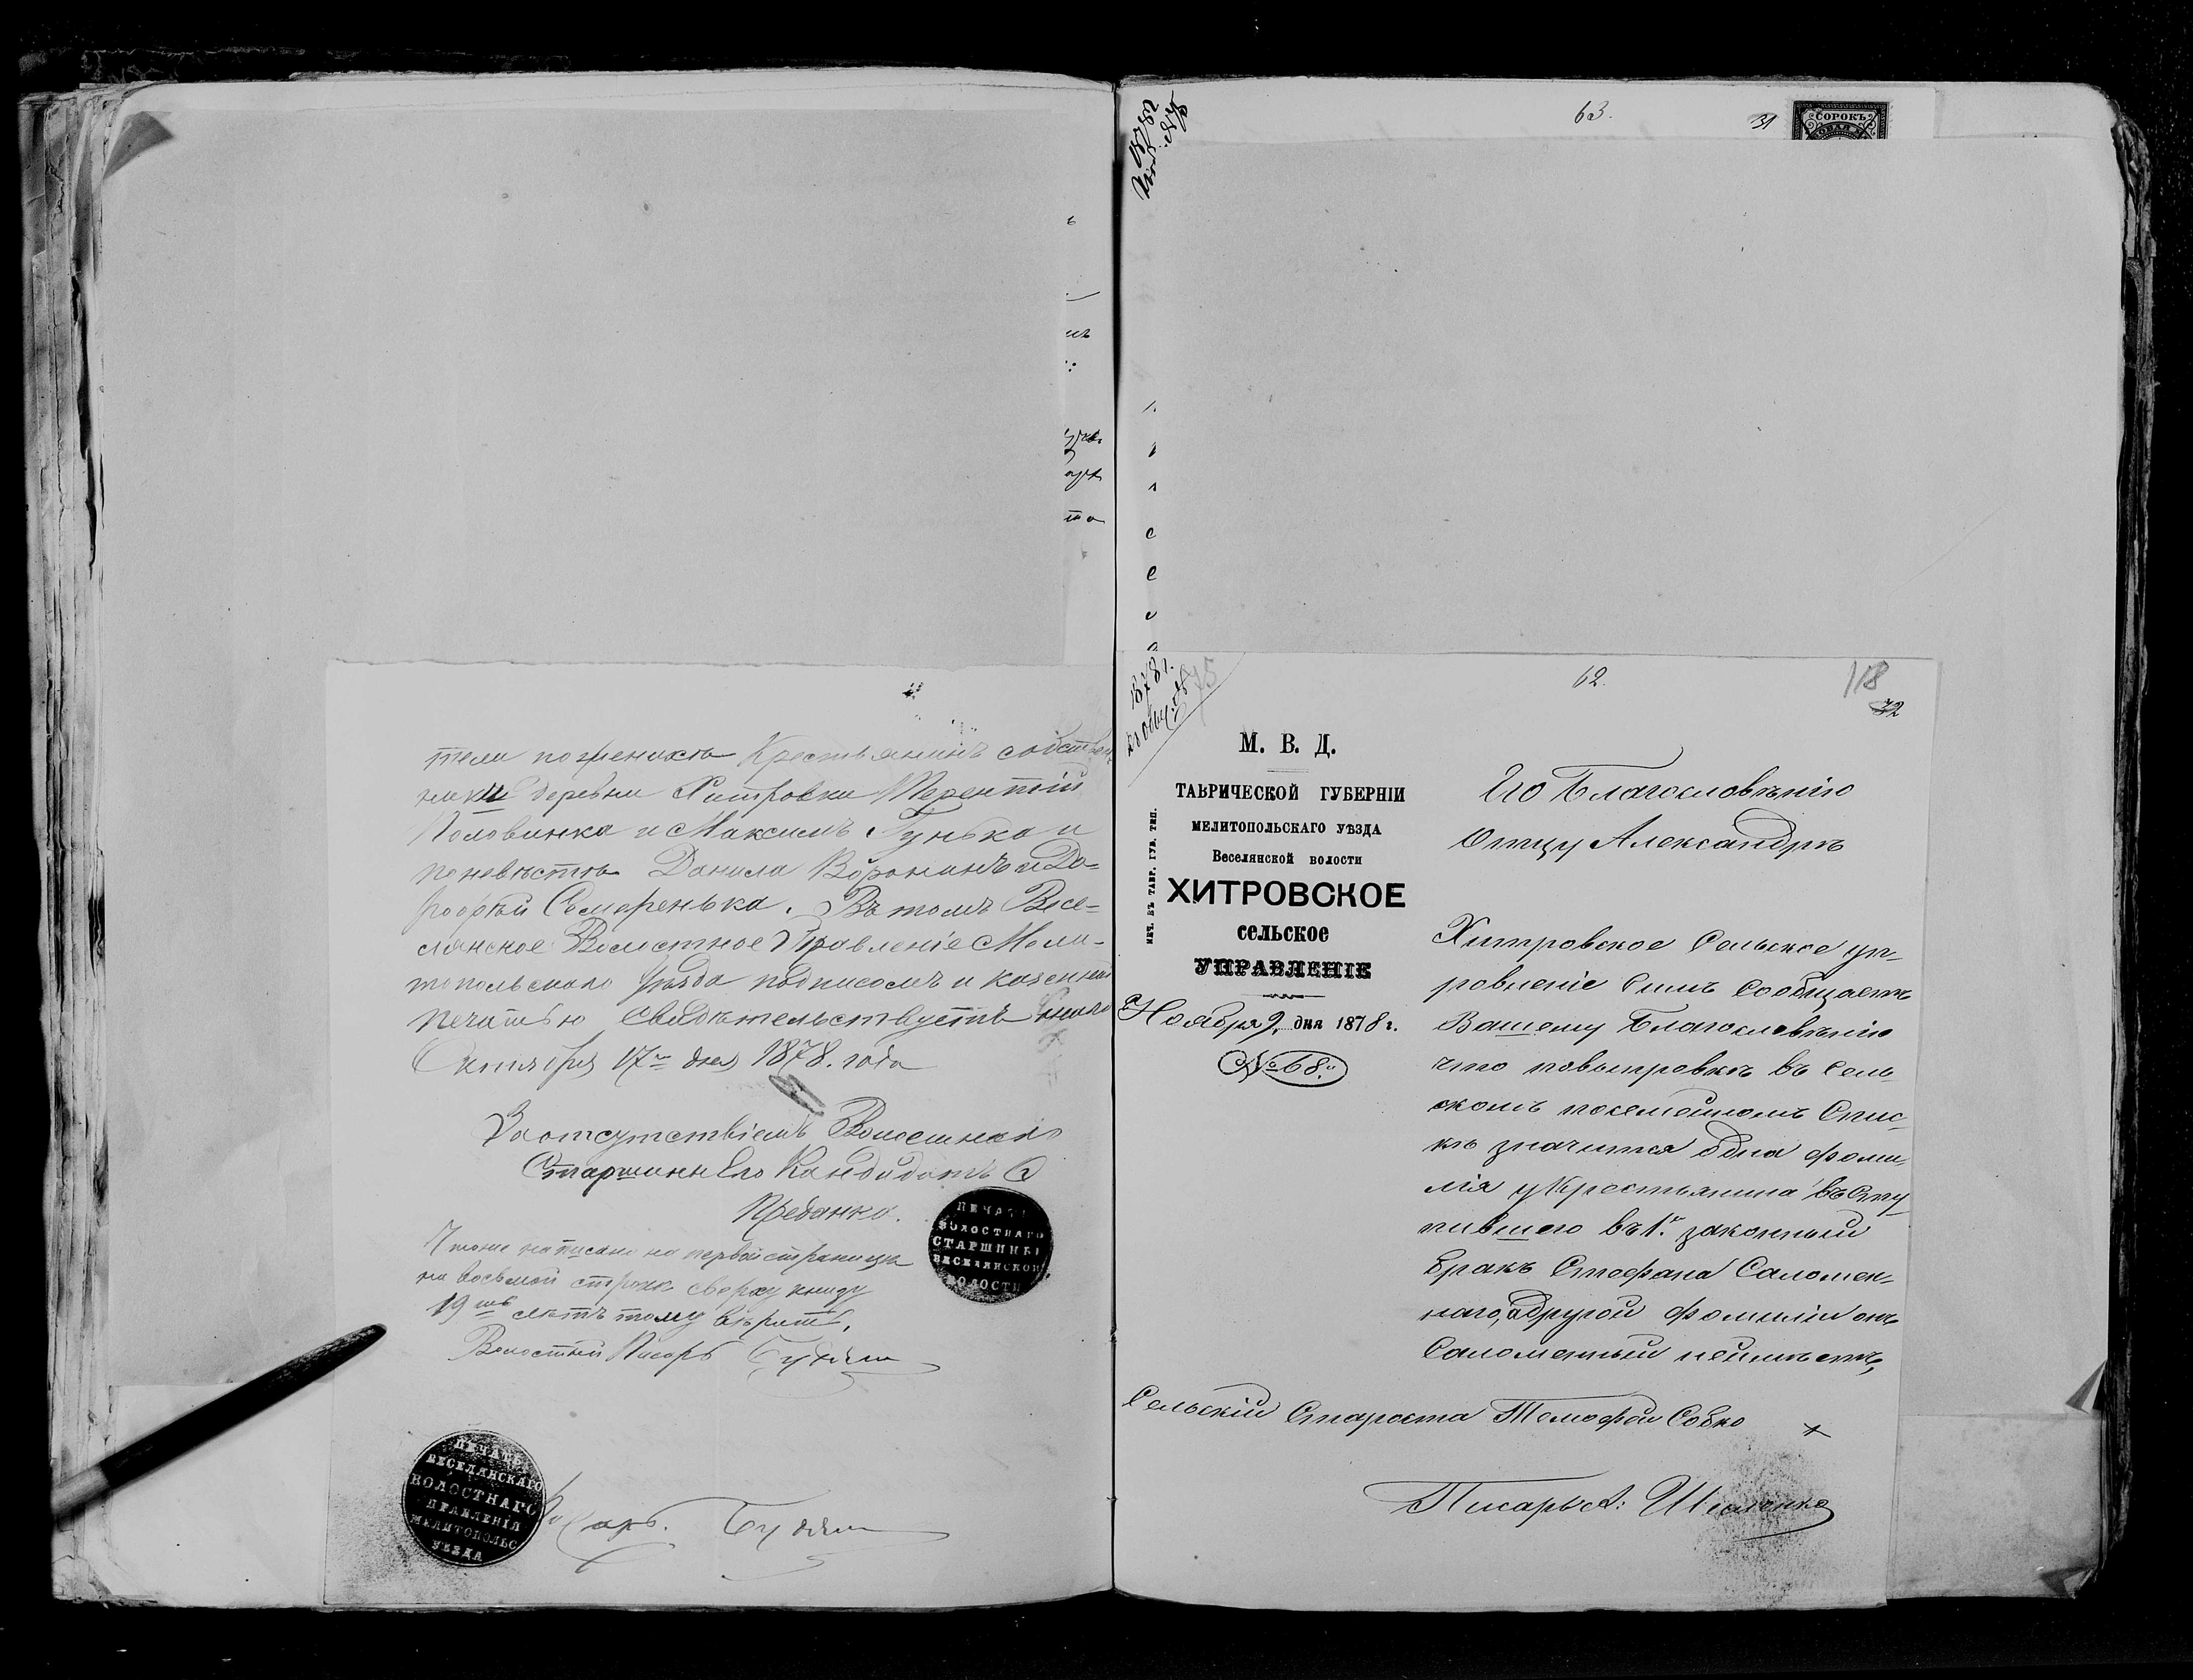 тели пожениха Крестьянинъ собствен
ники деревни Хитровки Терентій
Половинка и Максимъ Гунька и
поневѣстѣ Данила Воронинъ и До-
рофей Семеренька. Въ томъ Весе-
лянское Волостное Правленіе Мели-
топольскаго Уѣзда подписомъ и казенной
печатью свидѣтельствуетъ
Октября 17го дня 1878. года
За отсутствіемъ Волостнаго
Старшины Его Кандидатъ
Кребанка.
Что же написано на первой странице
на восьмой строкѣ сверху между
19ть лѣтъ тому вѣрить,
Волостной Писарь
ПЕЧАТЬ
ВОЛОСТНАГО
СТАРШИНЫ
ВЕСЕЛЯНСКОЙ
ВОЛОСТИ
ПЕЧАТЬ
ВЕСЕЛЯНСКАГО
ВОЛОСТНАГО
ПРАВЛЕНІЯ
МЕЛИТОПОЛЬС
УѢЗДА
Писарь.
63.
31
СОРОКЪ
62.
118
32
1878 г.
М. В. Д.
ТАВРИЧЕСКОЙ ГУБЕРНІИ
МЕЛИТОПОЛЬСКАГО УѢЗДА
Веселянской волости
ХИТРОВСКОЕ
сельское
УПРАВЛЕНІЕ
Ноября 9. дня 1878 г.
№ 68.
ПЕЧ. ВЪ ТАВР. ГУБ. ТИП.
Его Благословѣнію
Отцу Александръ
Хитровское Сельское уп-
ровленіе Симъ Сообщаетъ
Вашему Благословѣнію
что повыправкѣ въ Сель
скомъ посемейномъ Спис-
кѣ значится одна фами-
лія у Крестьянина въсту
пившего въ 1й. законный
бракъ Стефана Саломен-
наго, адругой фомиліи онъ
Саломенный неимѣетъ,
Сельскій Староста Темофей Совко
Писарь А: